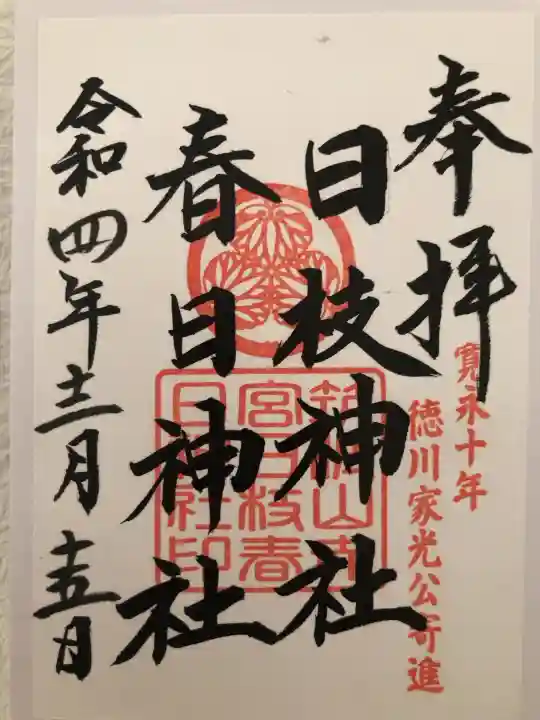 奉拝
寛永十年
徳川家光公寄進
日枝神社
春日神社
令和四年十二月十五日
筑波山
宮日枝春
日神社印